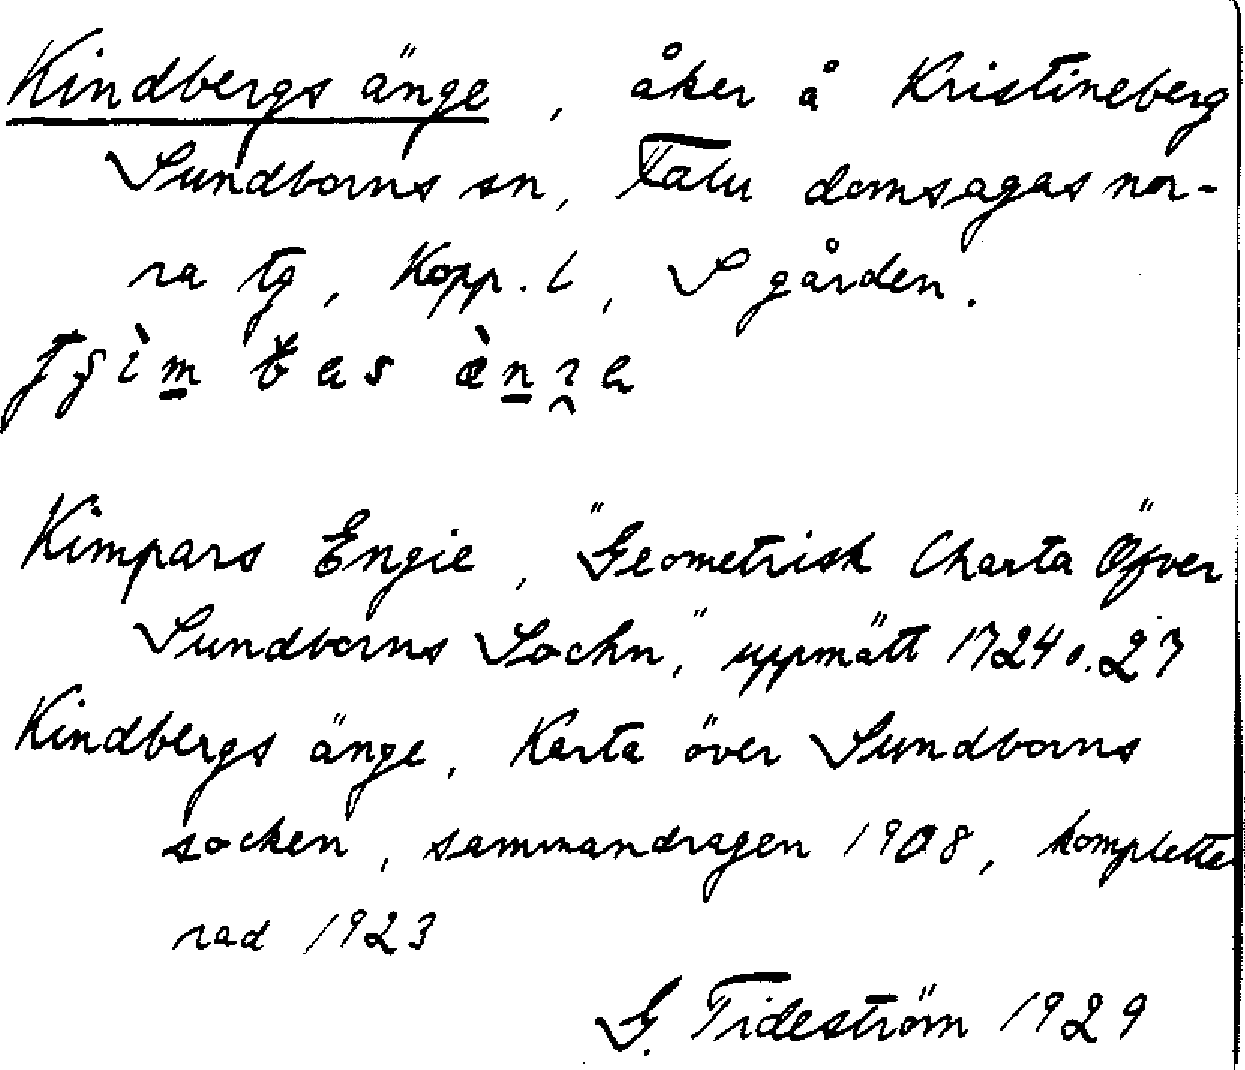 Kindbergs änge, åker å Kristineberg
Sundborns sn, Falu domsagas nor-
ra tg, Kopp. l, S gården.
Kimpars Engie, "Geometrisk Charta Öfver
Sundborns Sochn," uppmätt 1724 o. 27
Kindbergs änge, Karta över Sundborns
socken, sammandragen 1908, komplette
rad 1923
G. Tideström 1929